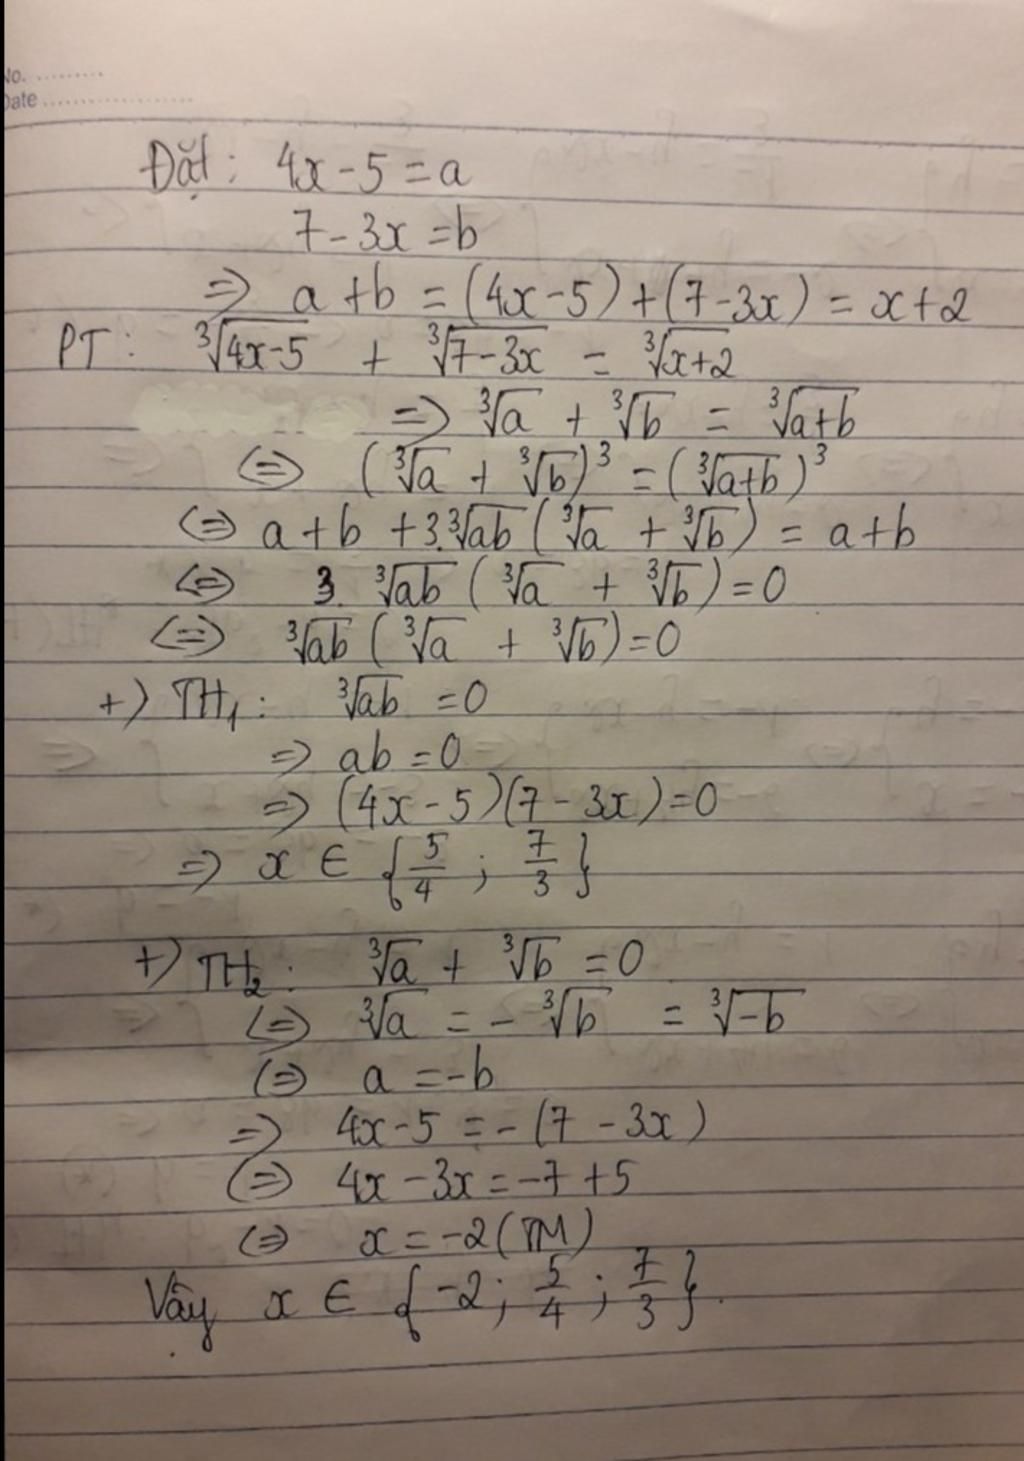 No. ..........
Date .....................
Đặt: 4x - 5 = a
7 - 3x = b
=> a + b = (4x - 5) + (7 - 3x) = x + 2
PT: ∛(4x-5) + ∛(7-3x) = ∛(x+2)
=> ∛a + ∛b = ∛(a+b)
<=> (∛a + ∛b)³ = (∛(a+b))³
<=> a + b + 3.∛(ab) (∛a + ∛b) = a + b
<=> 3. ∛(ab) (∛a + ∛b) = 0
<=> ∛(ab) (∛a + ∛b) = 0
+) TH₁: ∛(ab) = 0
=> ab = 0
=> (4x - 5)(7 - 3x) = 0
=> x ∈ {5/4 ; 7/3}
+) TH₂: ∛a + ∛b = 0
<=> ∛a = - ∛b = ∛(-b)
<=> a = -b
=> 4x - 5 = - (7 - 3x)
<=> 4x - 3x = -7 + 5
<=> x = -2 (TM)
Vậy x ∈ {-2 ; 5/4 ; 7/3}.